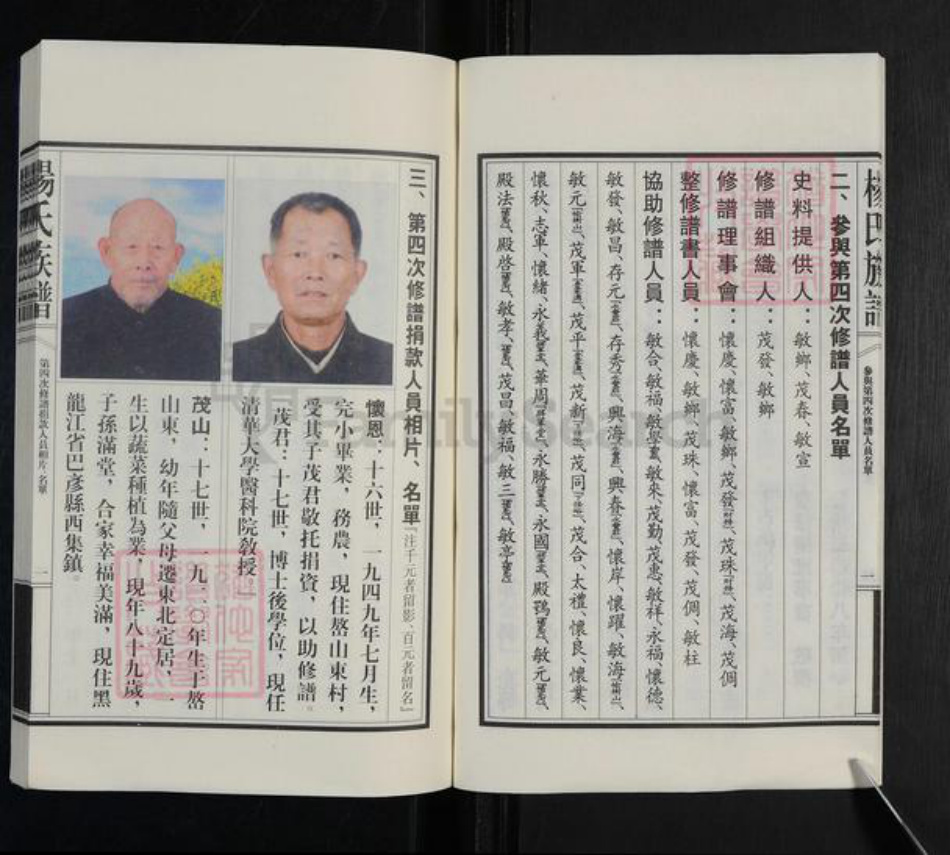 楊氏族譜
參與第四次修譜人員名單
一
二、參與第四次修譜人員名單
史料提供人：敏鄉、茂春、敏宣
修譜組織人：茂發、敏鄉
修譜理事會：懷慶、懷富、敏鄉、茂發、茂珠、茂海、茂倜
整修譜書人員：懷慶、敏鄉、茂珠、懷富、茂發、茂倜、敏柱
協助修譜人員：敏合、敏福、敏學、敏來、茂勤、茂惠、敏祥、永福、懷德、
敏發、敏昌、存元、存秀、興海、興春、懷岸、懷躍、敏海、
敏元、茂軍、茂平、茂新、茂同、茂合、太禮、懷良、懷業、
懷秋、志軍、懷緒、永義、華周、永勝、永國、殿鶚、敏元、
殿法、殿啓、敏孝、茂昌、敏福、敏三、敏亭
三、第四次修譜捐款人員相片、名單『注千元者留影、百元者留名』
懷恩：十六世，一九四九年七月生，
完小畢業，務農，現住嶅山東村，
受其子茂君敬托捐資，以助修譜。
茂君：十七世，博士後學位，現任
清華大學醫科院教授。
茂山：十七世，一九二〇年生于嶅
山東，幼年隨父母遷東北定居，一
生以蔬菜種植為業，現年八十九歲，
子孫滿堂，合家幸福美滿，現住黑
龍江省巴彥縣西集鎮。
楊氏族譜
第四次修譜捐款人員相片、名單
一
FamilySearch